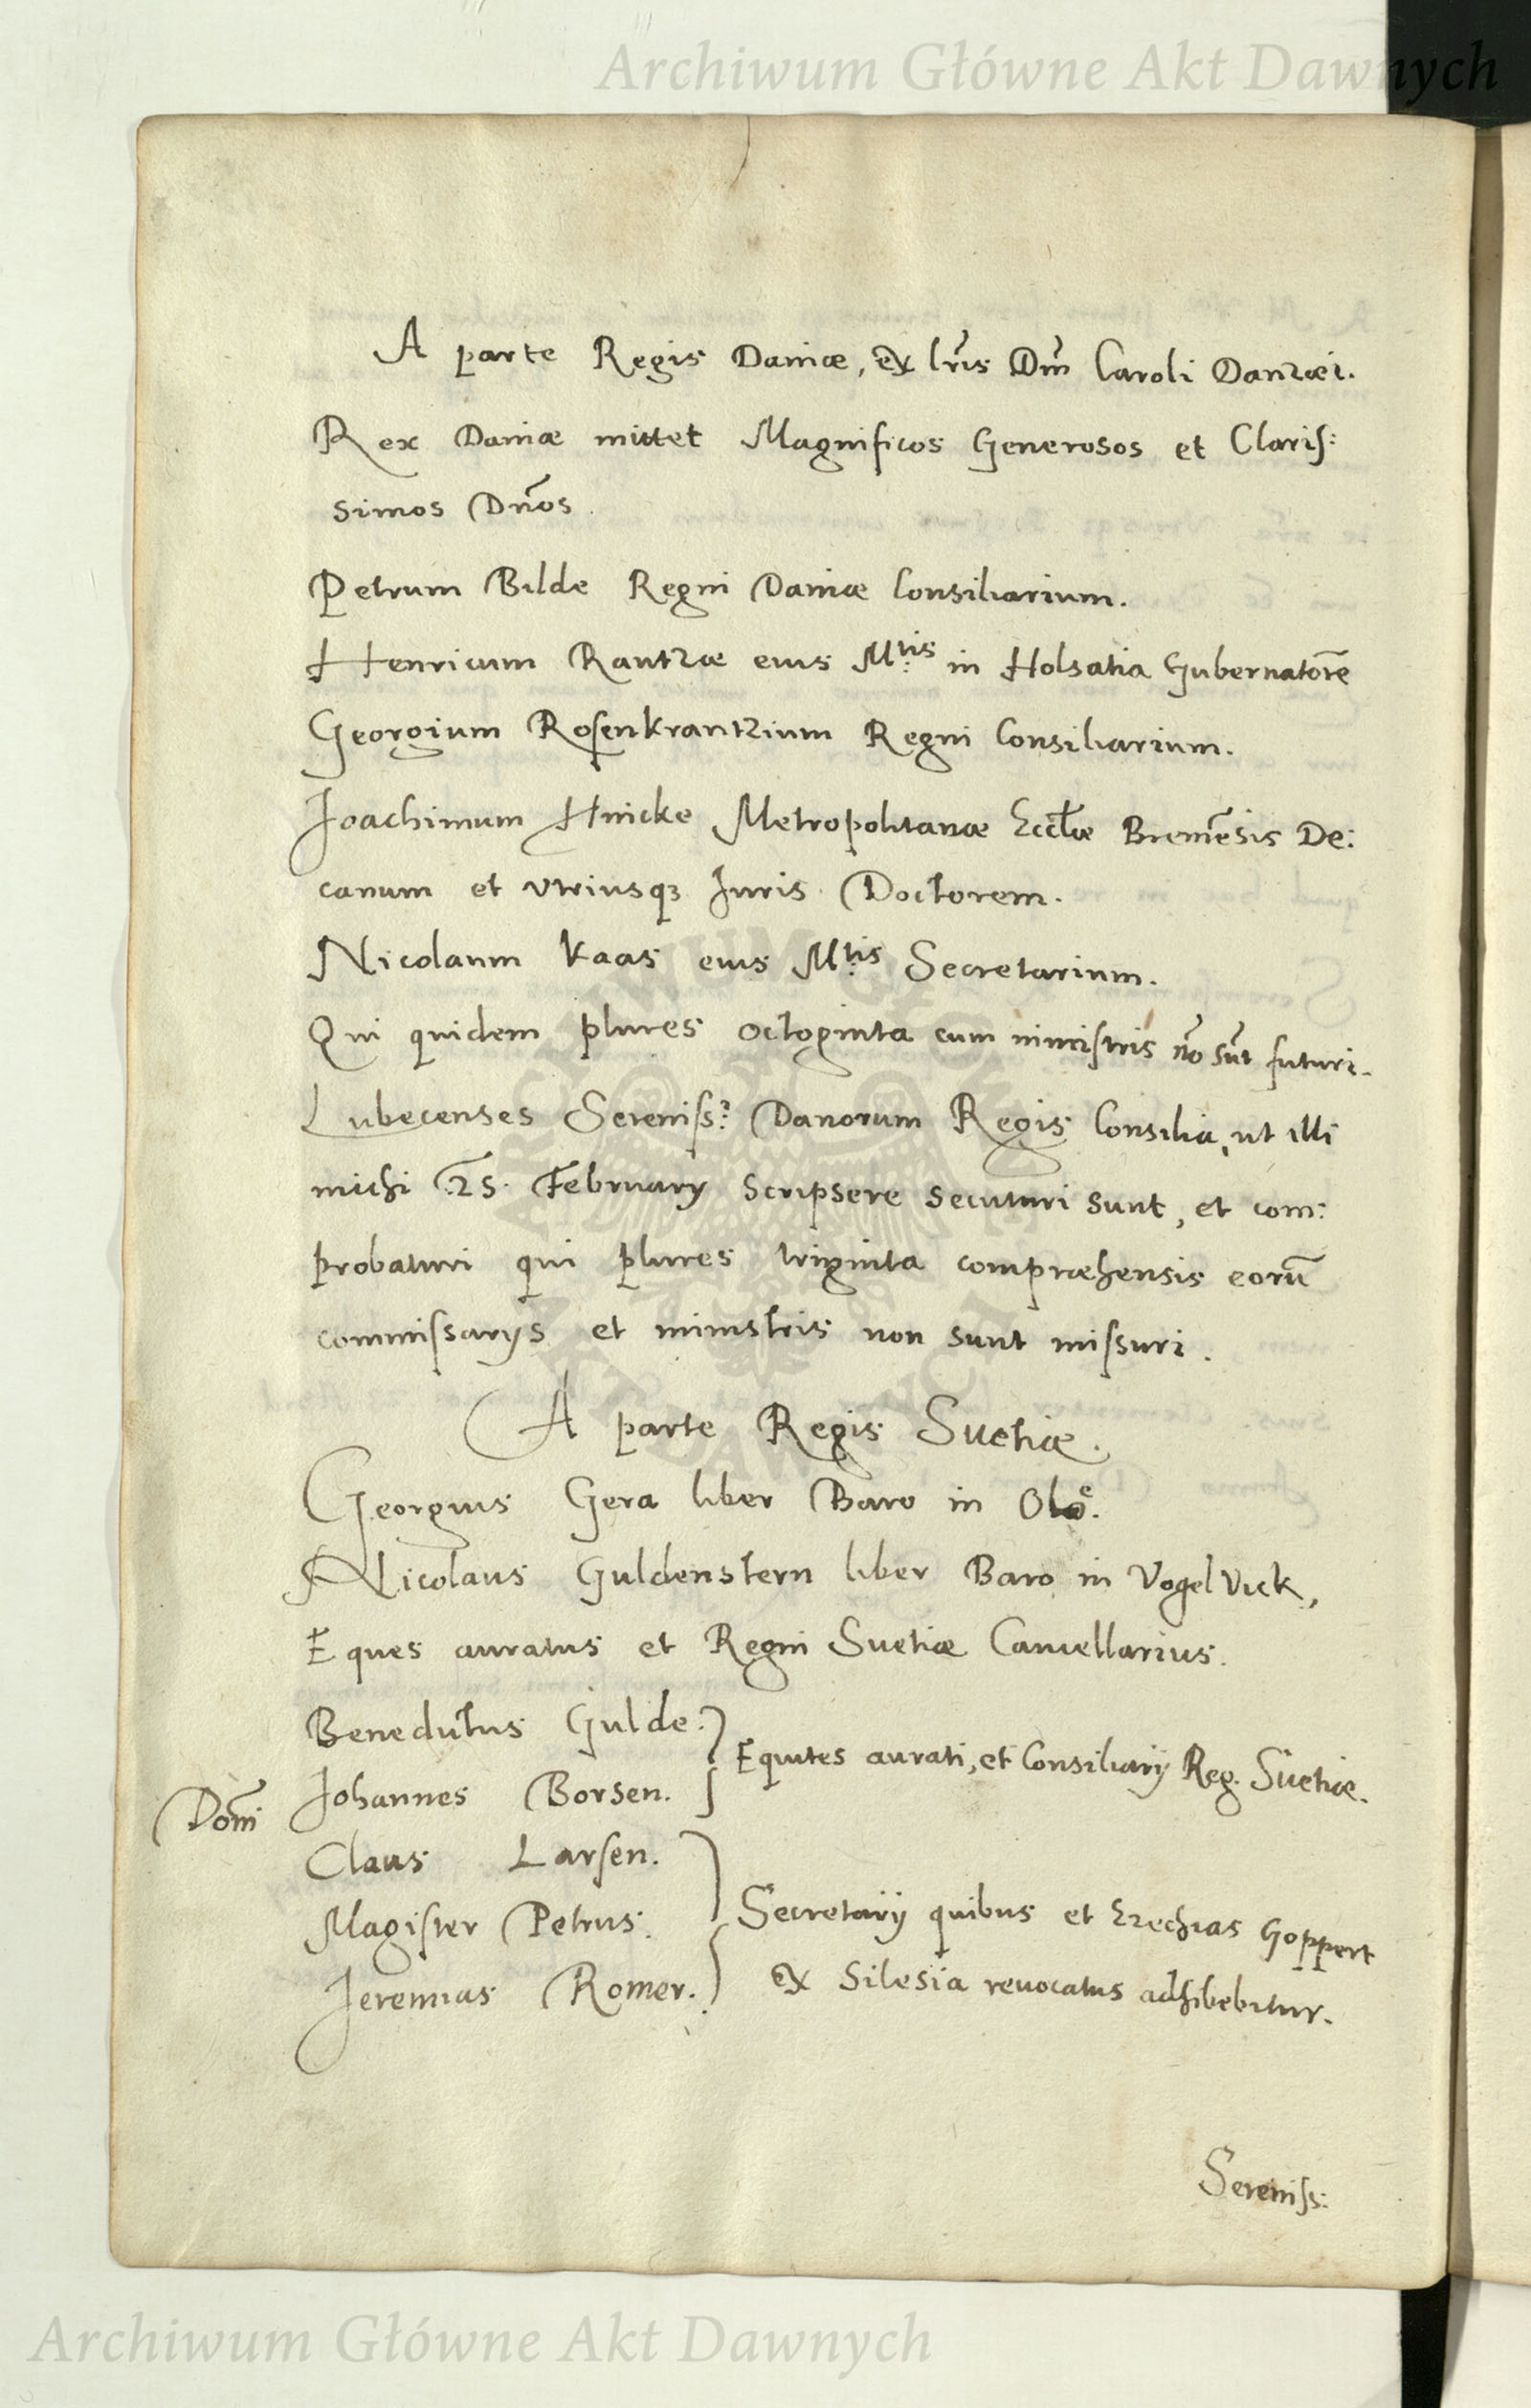 Archiwum Główne Akt Dawnych
A parte Regis Daniæ, ex lr̃is Dm̃ Caroli Danzæi.
Rex Daniæ mittet Magnificos Generosos et Clariſ:
simos Dn̄os.
Petrum Bilde Regni Daniæ Consiliarium.
Henricum Rantzæ eius Mtis in Holsatia Gubernatorē
Georgium Roſenkrantzium Regni Consiliarium.
Joachimum Hincke Metropolitanæ Eccl̃æ Bremēsis De:
canum et vtriusqꝫ Juris Doctorem.
Nicolaum Kaas eius Mtis Secretarium.
Qui quidem plures octoginta cum miniſtris nō sūt futuri.
Lubecenses Sereniſs: Danorum Regis Consilia, ut illi
michi 25. February scripsere secuturi sunt, et com:
probaturi qui plures triginta compræhensis eorū
commiſsarys et ministris non sunt miſsuri.
A parte Regis Suetiæ.
Georgius Gera liber Baro in
Nicolaus Guldenstern liber Baro in Vogelvick,
Eques auratus et Regni Suetiæ Cancellarius.
Benedictus Gulde.
Equites aurati, et Consiliarij Reg. Suetiæ.
Domī Johannes Borsen.
Claus Larſen.
Magiſter Petrus.
Secretarij quibus et Ezechias Goppert
Jeremias Romer.
ex Silesia reuocatus adhibebitur.
Sereniſs:
Archiwum Główne Akt Dawnych